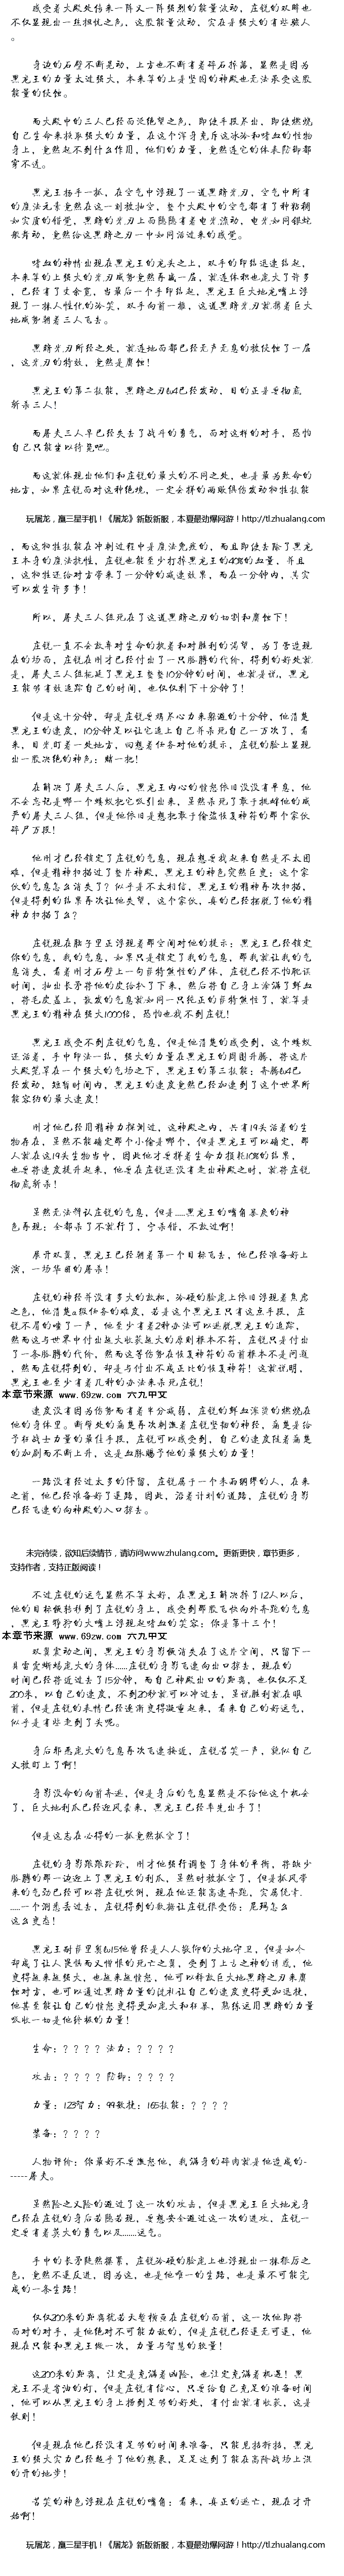 感受着大殿处传来一阵又一阵强烈的能量波动，庄锐的双眸也
不仅显现出一丝担忧之色，这股能量波动，实在是强大的有些骇人
。
身边的石壁不断晃动，上方也不断有着碎石掉落，显然是因为
黑龙王的力量太过强大，本来算的上是坚固的神殿也无法承受这股
能量的侵蚀。
而大殿中的三人已经面泛绝望之色，即使手段尽出，即使燃烧
自己生命来换取强大的力量，在这个浑身充斥这冰冷和嗜血的怪物
身上，竟然起不到什么作用，他们的力量，竟然连它的体表防御都
穿不透。
黑龙王扬手一抓，在空气中浮现了一道黑暗光刃，空气中所有
的魔法元素竟然在这一刻被抽空，整个大殿中的空气都有了种粘稠
如实质的错觉，黑暗的光刃上面隐隐有着电光流动，电光如同银蛇
般舞动，竟然给这黑暗之刃一种如同活过来的感觉。
嗜血的神情出现在黑龙王的龙头之上，双手的印结迅速结起，
本来算的上强大的光刃威势竟然再飙一层，就连体积也庞大了许多
，已经有了丈余宽，当最后一个手印结起，黑龙王巨大地龙嘴上浮
现了一抹人性化的冷笑，双手向前一推，这道黑暗光刃就携着巨大
地威势朝着三人飞去。
黑暗光刃所经之处，就连地面都已经无声无息的被侵蚀了一层
，这光刃的特效，竟然是腐蚀！
黑龙王的第二技能，黑暗之刃lv4已经发动，目的正是要彻底
斩杀三人！
而屠夫三人早已经失去了战斗的勇气，面对这样的对手，恐怕
自己只能坐以待毙吧。
而这就体现出他们和庄锐的最大的不同之处，也是最为致命的
地方，如果庄锐面对这种绝境，一定会拼的两败俱伤发动物性技能
玩屠龙，赢三星手机！《屠龙》新版新服，本夏最劲爆网游！http://tl.zhualang.com
，而这物性技能在冲刺过程中是魔法免疫的，而且即使去除了黑龙
王本身的魔法抗性，庄锐也能至少打掉黑龙王的40%的血量，并且
，这物性还给对方带来了一分钟的减速效果，而在一分钟内，其实
可以发生许多事！
所以，屠夫三人组死在了这道黑暗之刃的切割和腐蚀下！
庄锐一直不会放弃对生命的执着和对胜利的渴望，为了营造现
在的场面，庄锐在刚才已经付出了一只胳膊的代价，得到的好处就
是，屠夫三人组拖延了黑龙王整整10分钟的时间，也就是说，黑龙
王能够有效追踪自己的时间，也仅仅剩下十分钟了！
但是这十分钟，却是庄锐要竭尽心力来躲避的十分钟，他清楚
黑龙王的速度，10分钟足以让它追上自己并杀死自己一万次了，看
来，目光盯着一处地方，回想着任务对他的提示，庄锐的脸上显现
出一股决绝的神色：赌一把！
在解决了屠夫三人后，黑龙王内心的愤怒依旧没没有平息，他
不会忘记是哪一个蝼蚁把它吸引出来，虽然杀死了敢于挑衅他的威
严的屠夫三人组，但是他依旧是想把敢于偷盗恢复神符的那个家伙
碎尸万段！
他刚才已经锁定了庄锐的气息，现在想要找起来自然是不太困
难，但是精神扫描过了整片神殿，黑龙王的神色突然巨变：这个家
伙的气息怎么消失了？似乎是不太相信，黑龙王的精神再次扫描，
但是得到的结果再次让他失望，这个家伙，真的已经摆脱了他的精
神力扫描了么？
庄锐现在脑子里正浮现着那空间对他的提示：黑龙王已经锁定
你的气息，我的气息，如果只是锁定了我的气息，那我就让我的气
息消失，看着刚才石壁上一句菲特焦性的尸体，庄锐已经不怕耽误
时间，抽出长矛将他的皮给扒了下来，然后将自己身上涂满了鲜血
，将毛皮盖上，散发的气息就如同一只纯正的菲特焦性了，就算是
黑龙王的精神在强大1000倍，恐怕也找不到庄锐！
黑龙王感受不到庄锐的气息，但是他清楚的感受到，这个蝼蚁
还活着，手中印法一结，强大的力量在黑龙王的周围升腾，将这片
大殿笼罩在一个强大的气场之下，黑龙王的第三技能：奔腾lv4已
经发动，短暂时间内，黑龙王的速度竟然已经加速到了这个世界所
能容纳的最大速度！
刚才他已经用精神力探测过，这神殿之内，共有19头活着的生
物存在，虽然不能确定那个小偷是哪个，但是黑龙王可以确定，那
人就在这19头生物当中，因此他才要拼着生命力损耗10%的结果，
也要将速度提升起来，他要在庄锐还没有走出神殿之时，就将庄锐
彻底斩杀！
虽然无法辨认庄锐的气息，但是.....黑龙王的嘴角暴戾的神
色再现：全都杀了不就行了，宁杀错，不放过啊！
展开双翼，黑龙王已经朝着第一个目标飞去，他已经准备好上
演，一场华丽的屠杀！
庄锐的神经并没有多大的放松，冷硬的脸庞上依旧浮现着焦虑
之色，他清楚a级任务的难度，若是这个黑龙王只有这点手段，庄
锐不屑的嗤了一声，他至少有着2种办法可以逃脱黑龙王的追踪，
然而这与世界中付出越大收获越大的原则根本不符，庄锐只是付出
了一条胳膊的代价，然而这等伤势在恢复神符的面前根本不是问题
，然而庄锐得到的，却是与付出不成正比的恢复神符！这就说明，
黑龙王也至少有着几种的办法来杀死庄锐！
本章节来源 www.69zw.com 六九中文
速度没有因为伤势而有着半分减弱，庄锐的鲜血滚烫的燃烧在
他的身体里。断臂处的痛楚再次刺激着庄锐坚韧的神经，痛楚是给
予狂战士力量的最佳手段，庄锐可以感受到，自己的速度随着痛楚
的加剧而不断上升，这是血脉赐予他的最强大的力量！
一路没有经过太多的停留，庄锐属于一个未雨绸缪的人，在来
之前，他已经准备好了退路，因此，沿着计划的道路，庄锐的身影
已经飞速的向神殿的入口掠去。
未完待续，欲知后续情节，请访问www.zhulang.com。更新更快，章节更多，
支持作者，支持正版阅读！
不过庄锐的运气显然不算太好，在黑龙王解决掉了12人以后，
他的目标飙转移到了庄锐的身上，感受到那股飞快向外奔跑的气息
，黑龙王狰狞的大嘴上浮现起嗜血的笑容：你是第十三个！
本章节来源 www.69zw.com 六九中文
双翼震动之间，黑龙王的身影飙消失在了这片空间，只留下一
月雷霆崭烁庞大的身体......在庄锐的身影飞速向出口掠去，现在的
时间已经将近过去了15分钟，而自己神殿出口的距离，也仅仅不足
200米，以自己的速度，不到20秒就可以冲过去，虽说胜利就在眼
前，但是庄锐的表情已经逐渐变得凝重起来，看来自己的好运气，
似乎是有些走到了头呢。
身后邪恶庞大的气息再次飞速接近，庄锐苦笑一声，貌似自己
又被盯上了啊！
身影没命的向前奔逃，但是身后的气息显然是不给他这个机会
了，巨大地利爪已经迎风袭来，黑龙王已经率先出手了！
但是这志在必得的一抓竟然抓空了！
庄锐的身影踉踉跄跄，刚才他强行调整了身体的平衡，将缺少
胳膊的那一边迎上了黑龙王的利爪，虽然财被抓空了，但是抓风带
来的气劲已经可以将庄锐吹倒，现在他还能高速奔跑，实属侥幸.
.....一个洞悉丢过去，庄锐得到的数据让庄锐很受伤：尼玛怎么
这么变态！
黑龙王耐菲里奥lv15他曾经是人人敬仰的大地守卫，但是如今
却成了让人畏惧而又憎恨的死亡之翼，受到了上古之神的诱惑，他
变得越来越强大，也越来越愤怒，他可以释放巨大地黑暗之刃来腐
蚀对方，也可以通过黑暗力量的洗礼让自己的速度变得更加迅捷，
他甚至能让自己的愤怒变得更加庞大和狂暴，熟练运用黑暗的力量
吸收一切是他终极的力量！
生命：？？？？法力：？？？？
攻击：？？？？防御：？？？？
力量：123智力：99敏捷：165技能：？？？？
禁备：？？？？
人物评价：你最好不要激怒他，我满身的碎肉就是他造成的-
-----屠夫。
虽然险之又险的避过了这一次的攻击，但是黑龙王巨大地龙身
已经在庄锐的身后若隐若现，要想安全避过这一次的进攻，庄锐一
定要有着莫大的勇气以及........运气。
手中的长矛陡然握紧，庄锐冷硬的脸庞上也浮现出一抹狠厉之
色，竟然不退反进，因为这，也是他唯一的生路，也是最不可能完
成的一条生路！
仅仅200米的距离犹若天堑横亘在庄锐的面前，这一次他即将
面对的对手，是他绝对不可能力敌的，但是庄锐已经退无可退，他
现在只能和黑龙王做一次，力量与智慧的较量！
这200米的距离，注定是充满着凶险，也注定充满着机遇！黑
龙王不是省油的灯，但是庄锐有信心，只要给自己充足的准备时间
，他可以从黑龙王的身上捞到足够的好处，有付出就有收获，这是
铁则！
但是现在他已经没有足够的时间来准备，只能见招拆招，黑龙
王的强大实力已经超乎了他的想象，足足达到了能在高阶战场上混
的开的地步！
苦笑的神色浮现在庄锐的嘴角：看来，真正的逃亡，现在才开
始啊！
玩屠龙，赢三星手机！《屠龙》新版新服，本夏最劲爆网游！http://tl.zhualang.com